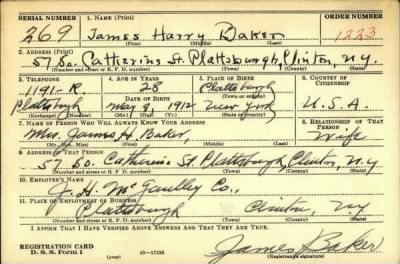 SERIAL NUMBER 1. NAME (Print) ORDER NUMBER
269 James Harry Baker 1223
(First) (Middle) (Last)
2. ADDRESS (Print)
57 So. Catherine St. Plattsburgh, Clinton, N.Y.
(Number and street or R. F. D. number) (Town) (County) (State)
3. TELEPHONE 4. AGE IN YEARS 5. PLACE OF BIRTH 6. COUNTRY OF CITIZENSHIP
1191-R. 28 Plattsburgh
DATE OF BIRTH (Town or county)
Plattsburgh May 9, 1912 New York U.S.A.
(Exchange) (Number) (Mo.) (Day) (Yr.) (State or country)
7. NAME OF PERSON WHO WILL ALWAYS KNOW YOUR ADDRESS 8. RELATIONSHIP OF THAT PERSON
Mrs. James H. Baker, Wife
(Mr., Mrs., Miss) (First) (Middle) (Last)
9. ADDRESS OF THAT PERSON
57 So. Catherine St. Plattsburgh, Clinton, N.Y
(Number and street or R. F. D. number) (Town) (County) (State)
10. EMPLOYER'S NAME
J. H. Co.,
11. PLACE OF EMPLOYMENT OR BUSINESS
Plattsburgh Clinton, NY
(Number and street or R. F. D. number) (Town) (County) (State)
I AFFIRM THAT I HAVE VERIFIED ABOVE ANSWERS AND THAT THEY ARE TRUE.
REGISTRATION CARD
D. S. S. Form 1 (over) 16—17105 James Baker
(Registrant's signature)